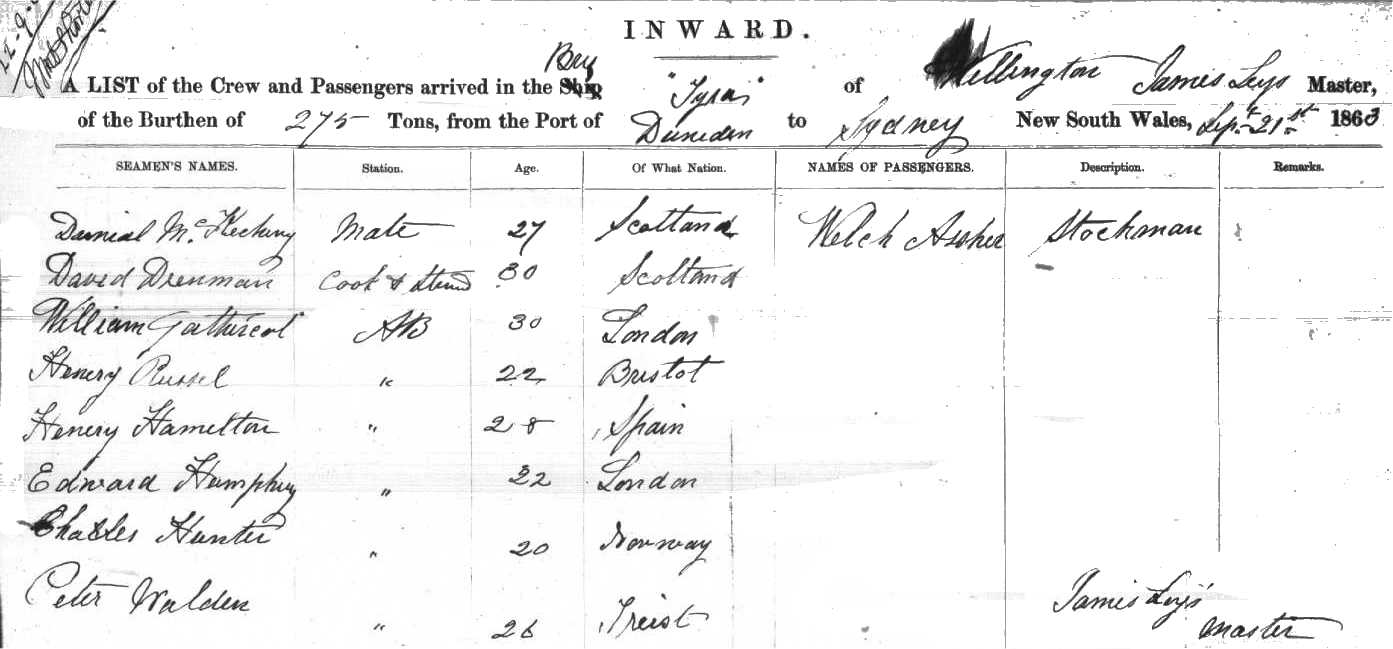 INWARD.
Brig
A LIST of the Crew and Passengers arrived in the Ship "Tyra" of Wellington James Leys Master,
of the Burthen of 275 Tons, from the Port of Duneden to Sydney New South Wales, Sept 21st 1863
SEAMEN'S NAMES. Station. Age. Of What Nation. NAMES OF PASSENGERS. Description. Remarks.
Danial Mc Mate 27 Scotland Welch Assher Stockman
David Drenman Cook & 30 Scotland
William AB 30 London
Henery Russel " 22 Bristol
Henery Hamelton " 28 Spain
Edward Humphry " 22 London
Charles Hunter " 20 Norway
Peter Walden " 26 Treist
James Leys
Master